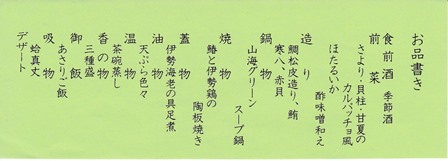 お品書き
食前酒　季節酒
前菜
さより・貝柱・甘夏の
カルパッチョ風
ほたるいか
酢味噌和え
造り
鯛松皮造り、鮪
寒八、赤貝
鍋物
山海グリーン
スープ鍋
焼物
鰆と伊勢鶏の
陶板焼き
蓋物
伊勢海老の具足煮
油物
天ぷら色々
温物
茶碗蒸し
香の物
三種盛
御飯
あさりご飯
吸物
蛤真丈
デザート